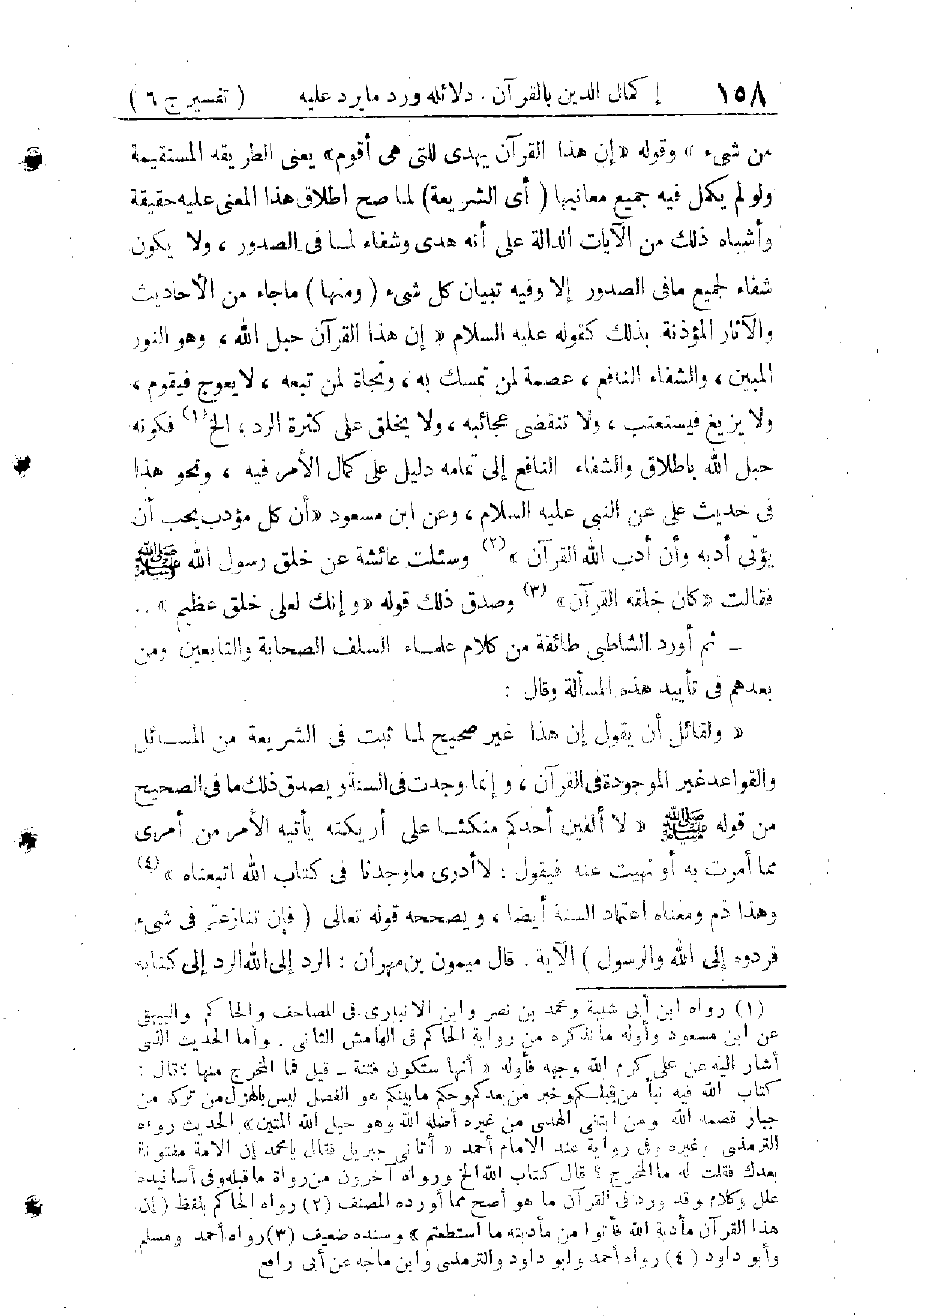 ١٥٨ إكمال الدين بالقرآن . دلائله ورد ما يرد عليه ( تفسير ج ٦ )
من شىء » وقوله « إن هذا القرآن يهدى للتى هى أقوم » يعنى الطريقه المستقيمة
ولو لم يكمل فيه جميع معانيها ( أى الشريعة ) لما صح اطلاق هذا المعنى عليه حقيقة
وأشباه ذلك من الآيات الدالة على أنه هدى وشفاء لما فى الصدور ، ولا يكون
شفاء لجميع مافى الصدور إلا وفيه تبيان كل شىء ( ومنها ) ماجاء من الأحاديث
والآثار المؤذنة بذلك كقوله عليه السلام « إن هذا القرآن حبل الله ، وهو النور
المبين ، والشفاء النافع ، عصمة لمن تمسك به ، ونجاة لمن تبعه ، لا يعوج فيقوم ،
ولا يزيغ فيستعتب ، ولا تنقضى عجائبه ، ولا يخلق على كثرة الرد ، الخ (١) فكونه
حبل الله باطلاق والشفاء النافع إلى تمامه دليل على كمال الأمر فيه ، ونحو هذا
فى حديث على عن النبى عليه السلام ، وعن ابن مسعود « أن كل مؤدب يحب أن
يؤتى أدبه وأن أدب الله القرآن » (٢) وسئلت عائشة عن خلق رسول الله ﷺ
فقالت « كان خلقه القرآن » (٣) وصدق ذلك قوله « وإنك لعلى خلق عظيم » ..
ـ ثم أورد الشاطبى طائفة من كلام علماء السلف الصحابة والتابعين ومن
بعدهم فى تأييد هذه المسألة وقال :
« ولقائل أن يقول إن هذا غير صحيح لما ثبت فى الشريعة من المسائل
والقواعد غير الموجودة فى القرآن ، وإنما وجدت فى السنة ويصدق ذلك ما فى الصحيح
من قوله ﷺ « لا ألفين أحدكم متكئا على أريكته يأتيه الأمر من أمرى
مما أمرت به أو نهيت عنه فيقول : لا أدرى ماوجدنا فى كتاب الله اتبعناه » (٤)
وهذا ذم ومعناه اعتماد السنة أيضا ، ويصححه قوله تعالى ( فإن تنازعتم فى شىء
فردوه إلى الله والرسول ) الآية . قال ميمون بن مهران : الرد إلى الله الرد إلى كتابه
(١) رواه ابن أبى شيبة ومحمد بن نصر وابن الانبارى فى المصاحف والحاكم والبيهقى
عن ابن مسعود وأوله ما نذكره من رواية الحاكم فى الهامش الثانى . وأما الحديث الذى
أشار اليه عن على كرم الله وجهه فأوله « أنها ستكون فتنة ـ قيل فما المخرج منها ؟ قال :
كتاب الله فيه نبأ من قبلكم وخبر من بعدكم وحكم مابينكم هو الفصل ليس بالهزل من تركه من
جبار قصمه الله ومن ابتغى الهدى من غيره أضله الله وهو حبل الله المتين » الحديث رواه
الترمذى وغيره وفى رواية عند الامام أحمد « أتانى جبريل فقال يامحمد إن الامة مفتونة
بعدك فقلت له ما المخرج ؟ قال كتاب الله الخ ورواه آخرون من رواة ماقبله وفى أسانيده
علل وكلام وقد ورد فى القرآن ما هو أصح مما أورده المصنف (٢) رواه الحاكم بلفظ ( إن
هذا القرآن مأدبة الله فأتوا من مأدبته ما استطعتم » وسنده ضعيف (٣) رواه أحمد ومسلم
وأبو داود (٤) رواه أحمد وابو داود والترمذى وابن ماجه عن أبى رافع